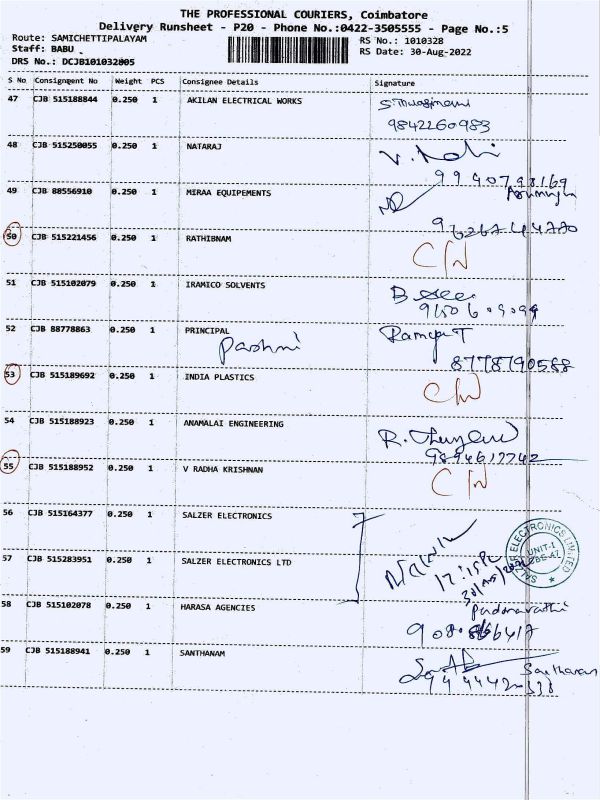 THE PROFESSIONAL COURIERS, Coimbatore
Delivery Runsheet - P20 - Phone No.:0422-3505555 - Page No.:5
Route: SAMICHETTIPALAYAM
RS No.: 1010328
Staff: BABU .
RS Date: 30-Aug-2022
DRS No.: DCJB101032805
S No Consignment No Weight PCS Consignee Details Signature
47 CJB 515188844 0.250 1 AKILAN ELECTRICAL WORKS
9842260983
48 CJB 515250055 0.250 1 NATARAJ
9940798169
49 CJB 88556910 0.250 1 MIRAA EQUIPEMENTS
50 CJB 515221456 0.250 1 RATHIBNAM C/N
51 CJB 515102079 0.250 1 IRAMICO SOLVENTS
52 CJB 88778863 0.250 1 PRINCIPAL
8778790588
53 CJB 515189692 0.250 1 INDIA PLASTICS C/N
54 CJB 515188923 0.250 1 ANAMALAI ENGINEERING
9894617742
55 CJB 515188952 0.250 1 V RADHA KRISHNAN C/N
56 CJB 515164377 0.250 1 SALZER ELECTRONICS
SALZER ELECTRONICS LIMITED
UNIT-I
57 CJB 515283951 0.250 1 SALZER ELECTRONICS LTD
58 CJB 515102078 0.250 1 HARASA AGENCIES
Padmavathi
59 CJB 515188941 0.250 1 SANTHANAM